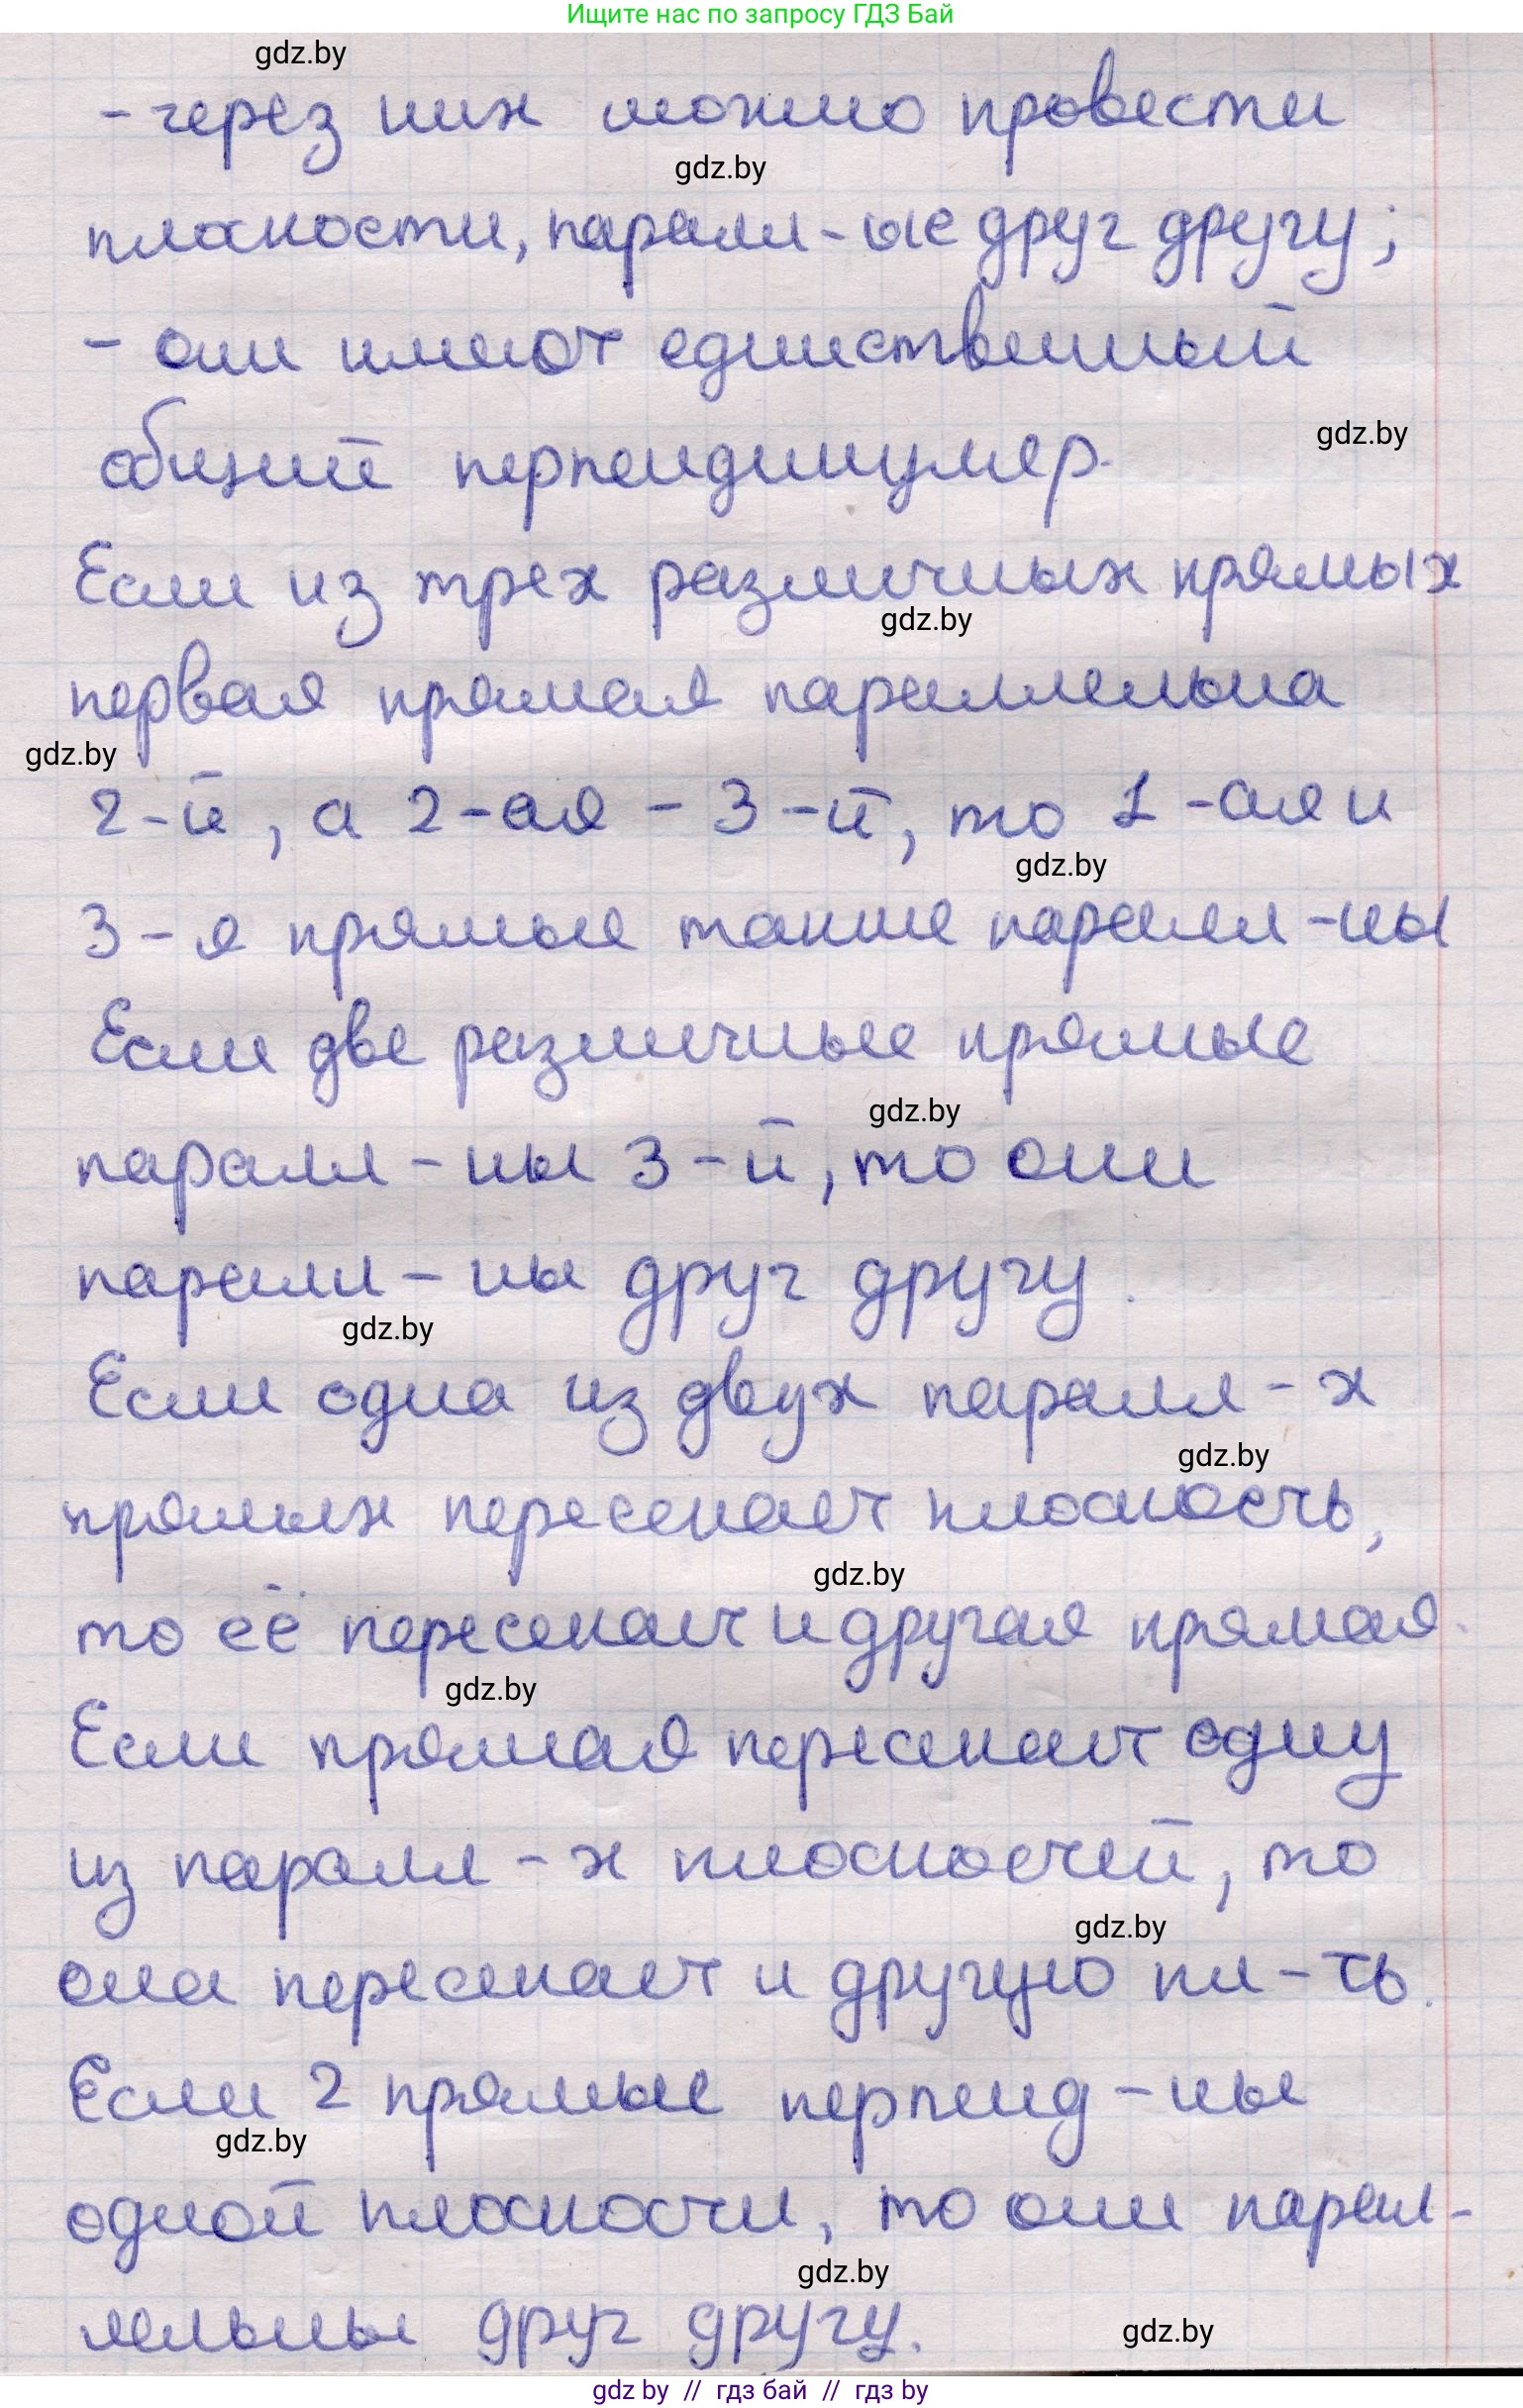 Ищите нас по запросу ГДЗ Бай
gdz.by
- через них можно провести
gdz.by
плоскости, паралл-ые друг другу;
- они имеют единственный
общий перпендикуляр.
gdz.by
Если из трех различных прямых
gdz.by
первая прямая параллельна
gdz.by
2-й, а 2-ая - 3-й, то 1-ая и
gdz.by
3-я прямые также паралл-ны
Если две различные прямые
gdz.by
паралл-ны 3-й, то они
паралл-ны друг другу.
gdz.by
Если одна из двух паралл-х
gdz.by
прямых пересекает плоскость,
gdz.by
то её пересекает и другая прямая.
gdz.by
Если прямая пересекает одну
из паралл-х плоскостей, то
gdz.by
она пересекает и другую пл-ть.
Если 2 прямые перпенд-ны
gdz.by
одной плоскости, то они парал-
gdz.by
лельны друг другу.
gdz.by
gdz by // гдз бай // гдз by